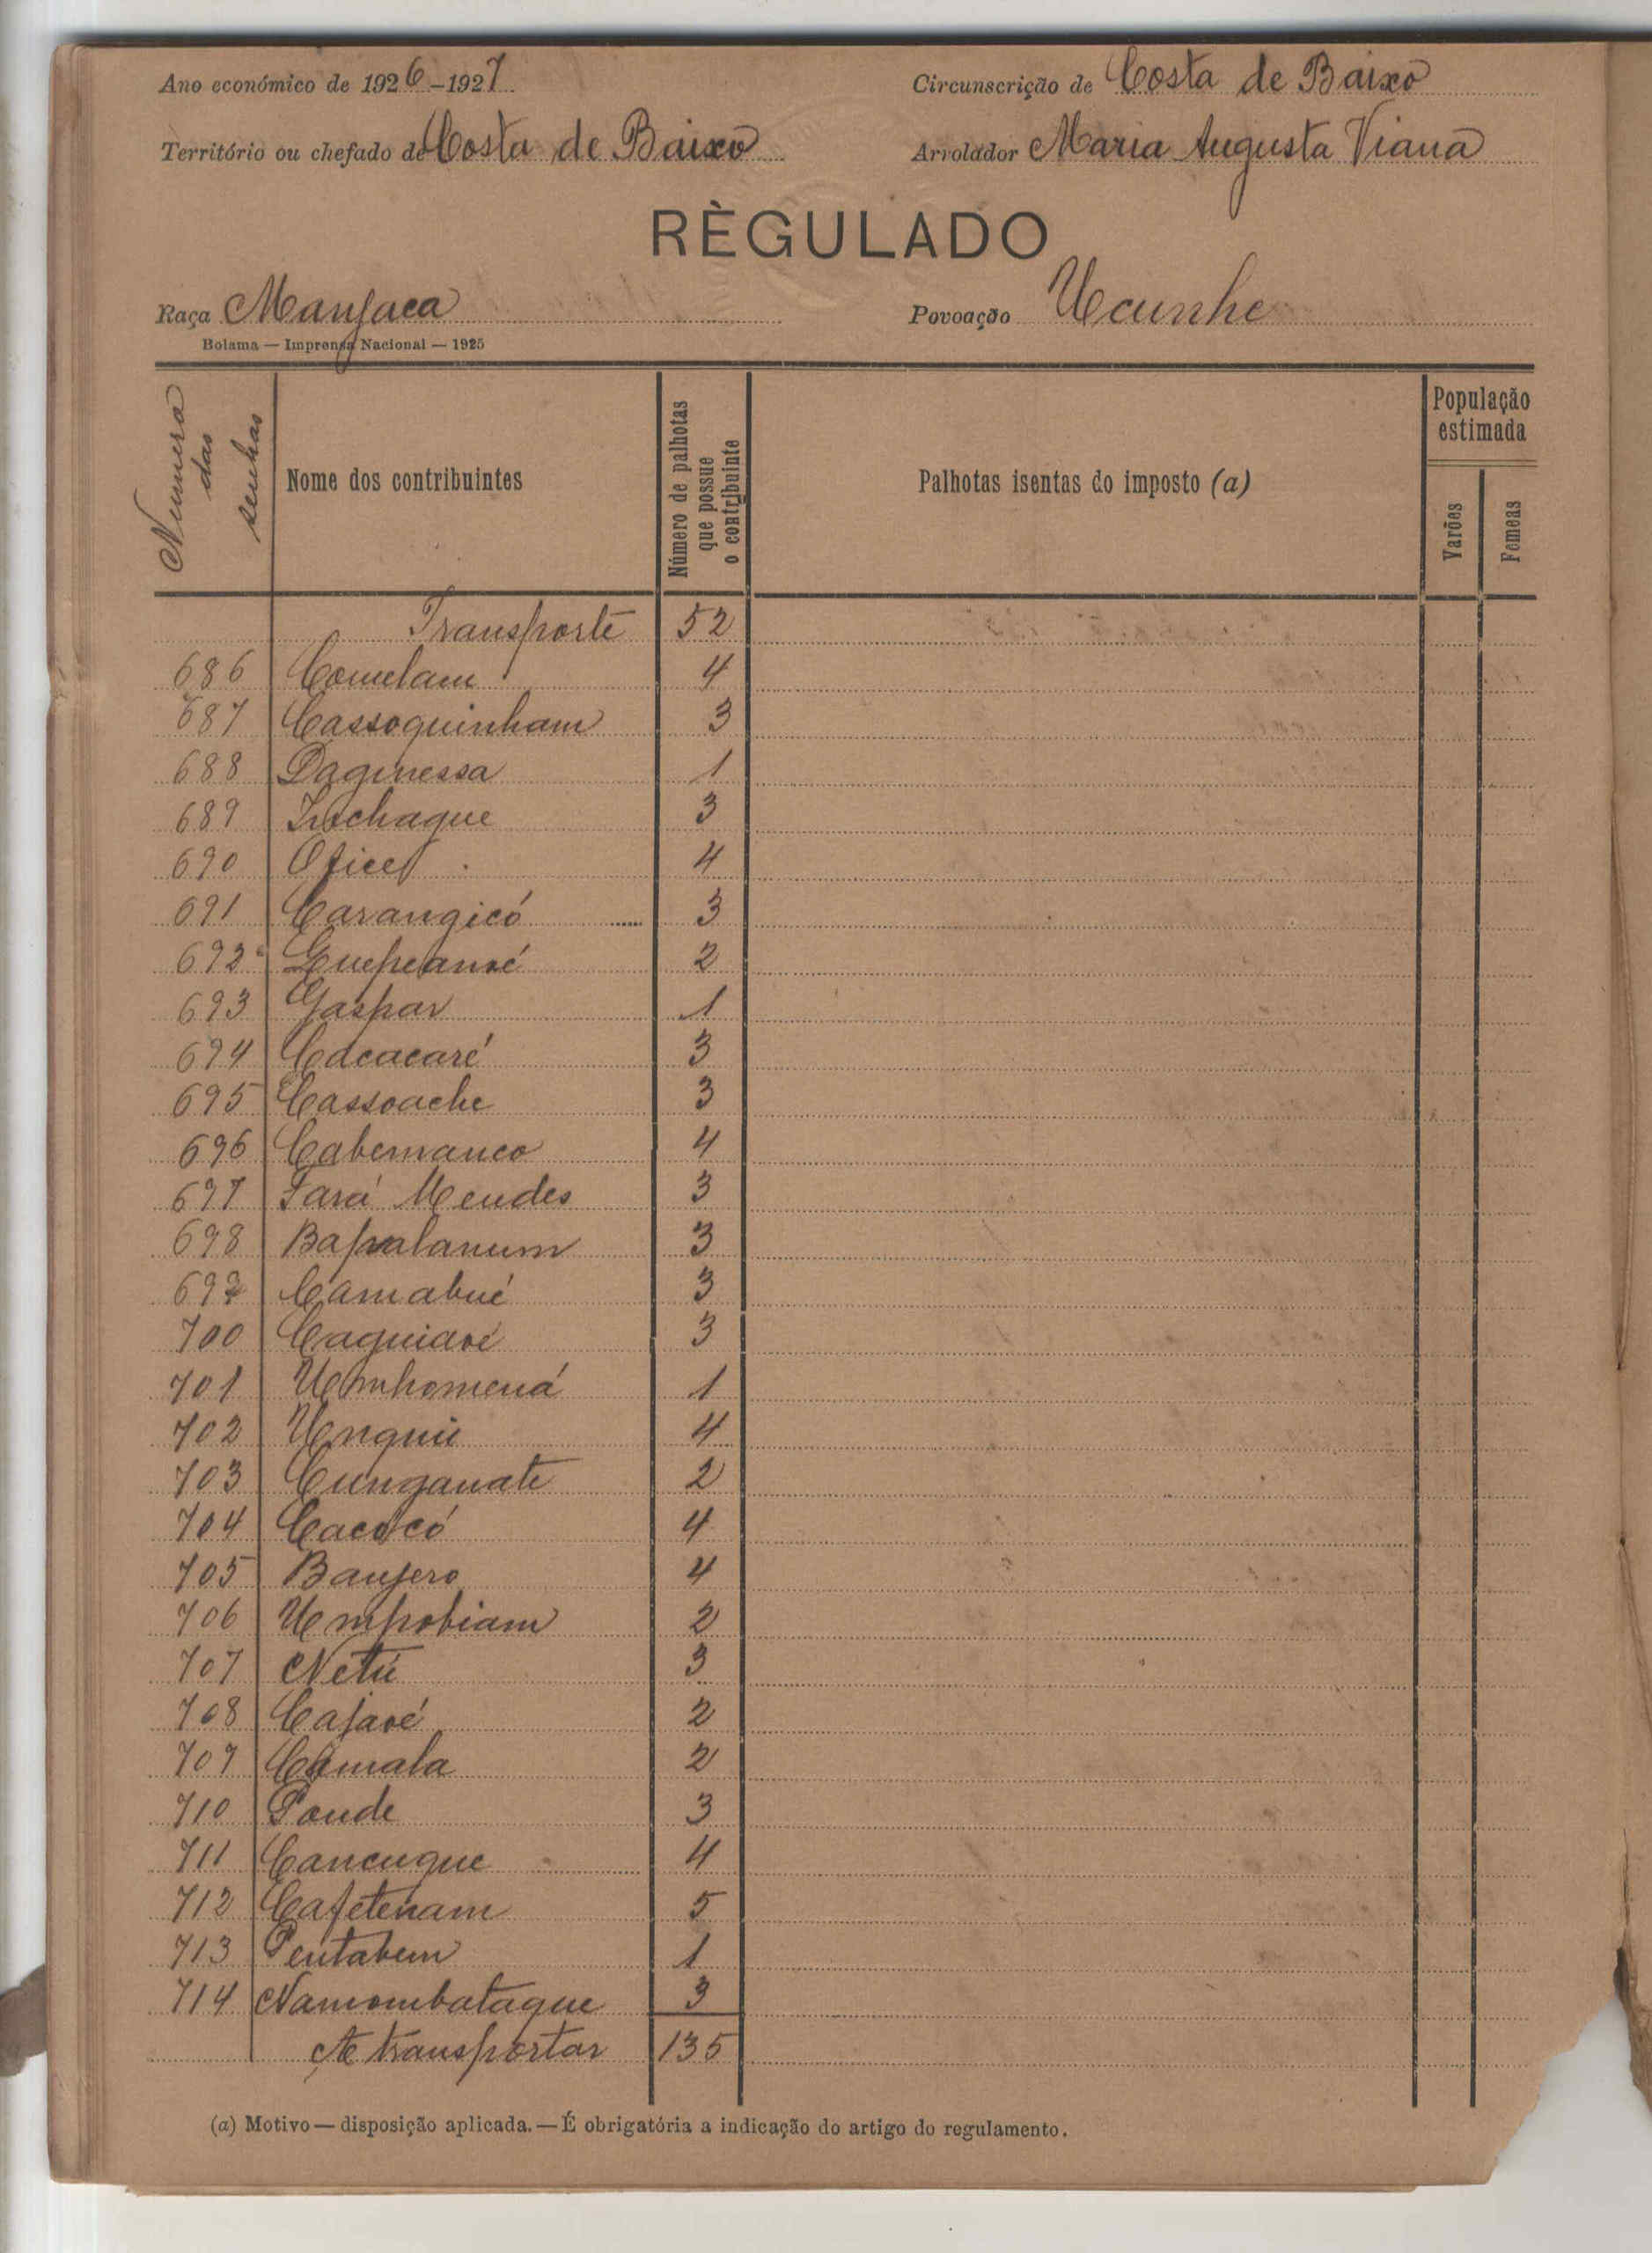 Ano económico de 1926-1927 Circunscrição de Costa de Baixo
Território ou chefado de Costa de Baixo Arrolador Maria Augusta Viana
RÈGULADO
Raça Manjaca Povoação Ucunhe
Bolama — Imprensa Nacional — 1925
Numero das senhas Nome dos contribuintes Número de palhotas que possue o contribuinte Palhotas isentas do imposto (a) População estimada Varões Femeas
Transporte 52
686 Comelam 4
687 Cassoquinham 3
688 Daginessa 1
689 Inchaque 3
690 Ofice 4
691 Carangicó 3
692 2
693 Gaspar 1
694 Cacacaré 3
695 Cassoache 3
696 Cabemanco 4
697 Sará Mendes 3
698 Bapalanum 3
699 Camabué 3
700 Caguiaré 3
701 Umhomená 1
702 Unguii 4
703 Cunganate 2
704 Cacocó 4
705 Banjero 4
706 Umpobiam 2
707 Netú 3
708 Cajaré 2
709 Camala 2
710 Ponde 3
711 Cancugue 4
712 Cafetenam 5
713 Pentabem 1
714 Namombatague 3
A transportar 135
(a) Motivo — disposição aplicada. — É obrigatória a indicação do artigo do regulamento.